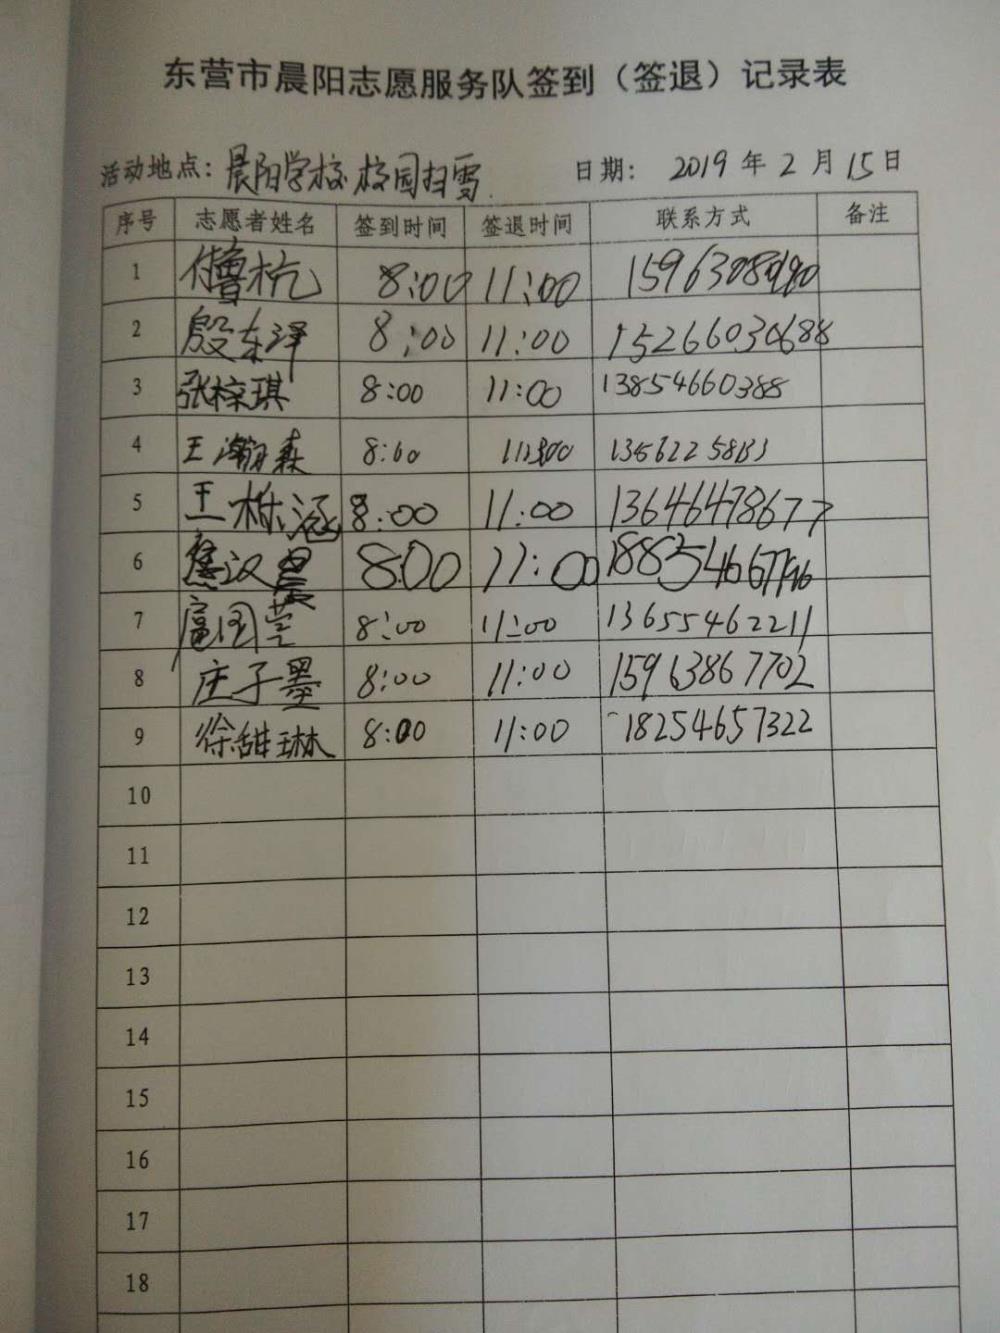 东营市晨阳志愿服务队签到（签退）记录表
活动地点：晨阳学校校园扫雪. 日期： 2019 年 2 月 15 日
序号 志愿者姓名 签到时间 签退时间 联系方式 备注
1 付鲁杭 8:00 11:00
2 殷东泽 8:00 11:00 15266030688
3 张梓琪 8:00 11:00 13854660388
4 王瀚森 8:00
5 王栎涵 8:00 11:00 13646478677
6 8:00 11:00
7 8:00 11:00 13655462211
8 庄子墨 8:00 11:00 15963867702
9 徐甜琳 8:00 11:00 18254657322
10
11
12
13
14
15
16
17
18